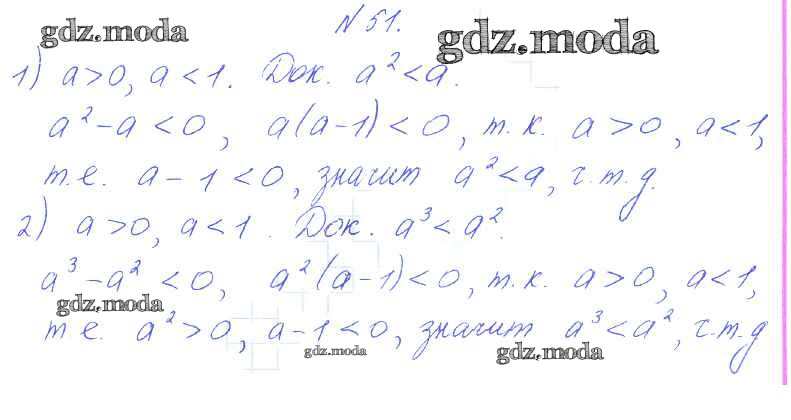 N 51.
gdz.moda gdz.moda
1) a>0, a<1. Док. a²<a.
a²-a<0, a(a-1)<0, т.к. a>0, a<1,
т.е. a-1<0, значит a²<a, ч.т.д.
2) a>0, a<1. Док. a³<a².
a³-a²<0, a²(a-1)<0, т.к. a>0, a<1,
gdz.moda
т.е. a²>0, a-1<0, значит a³<a², ч.т.д
gdz.moda gdz.moda